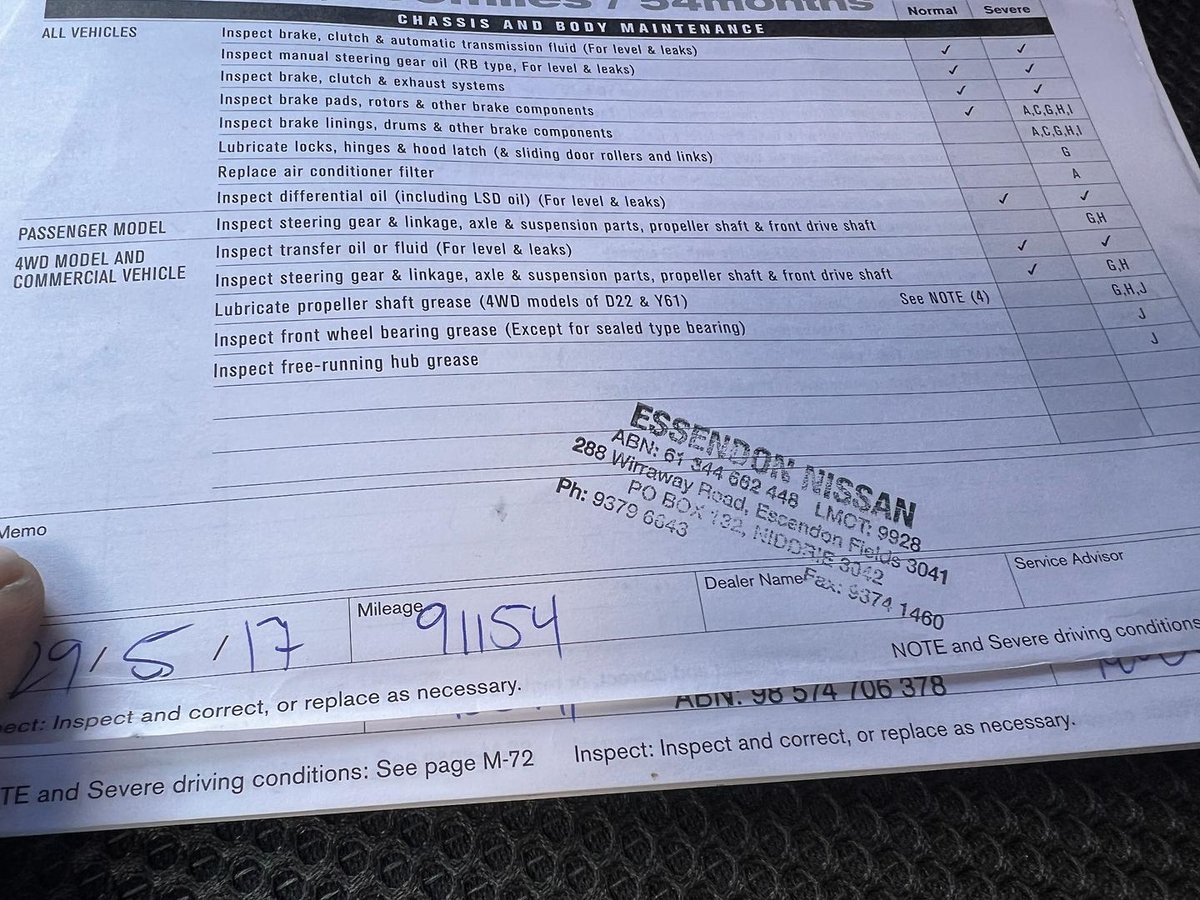 miles / 54months
Normal Severe
CHASSIS AND BODY MAINTENANCE
ALL VEHICLES
Inspect brake, clutch & automatic transmission fluid (For level & leaks) ✓ ✓
Inspect manual steering gear oil (RB type, For level & leaks) ✓ ✓
Inspect brake, clutch & exhaust systems ✓ ✓
Inspect brake pads, rotors & other brake components ✓ A,C,G,H,I
Inspect brake linings, drums & other brake components A,C,G,H,I
Lubricate locks, hinges & hood latch (& sliding door rollers and links) G
Replace air conditioner filter A
Inspect differential oil (including LSD oil) (For level & leaks) ✓ ✓
PASSENGER MODEL Inspect steering gear & linkage, axle & suspension parts, propeller shaft & front drive shaft G,H
4WD MODEL AND
COMMERCIAL VEHICLE
Inspect transfer oil or fluid (For level & leaks) ✓ ✓
Inspect steering gear & linkage, axle & suspension parts, propeller shaft & front drive shaft ✓ G,H
Lubricate propeller shaft grease (4WD models of D22 & Y61) See NOTE (4) G,H,J
Inspect front wheel bearing grease (Except for sealed type bearing) J
Inspect free-running hub grease J
ESSENDON NISSAN
ABN: 61 344 662 448 LMCT: 9928
288 Wirraway Road, Essendon Fields 3041
PO BOX 132, NIDDRIE 3042
Ph: 9379 6643 Fax: 9374 1460
Memo
29/5/17
Mileage 91154
Dealer Name
Service Advisor
NOTE and Severe driving conditions
ect: Inspect and correct, or replace as necessary.
ABN: 98 574 706 378
TE and Severe driving conditions: See page M-72 Inspect: Inspect and correct, or replace as necessary.